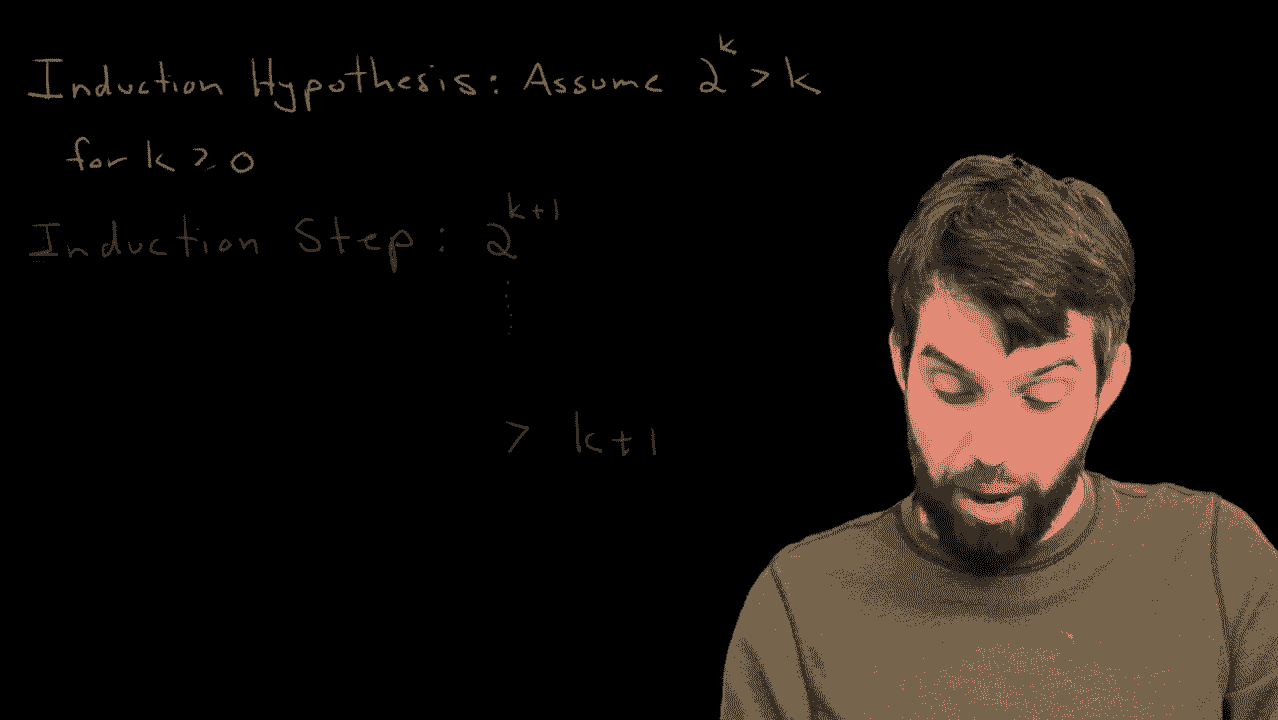 Induction Hypothesis: Assume 2^k > k
for k ≥ 0
Induction Step: 2^{k+1}
⋮
> k+1